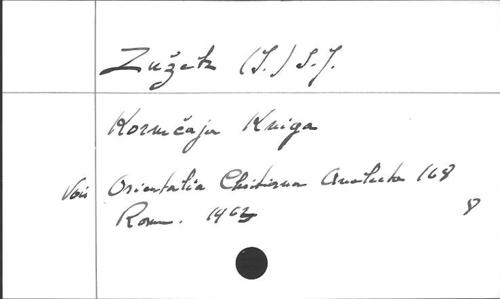 Zužek (I.) S.J.
Kormčaja Kniga
Vois Orientalia Christiana Analecta 168
Rome. 1963
8